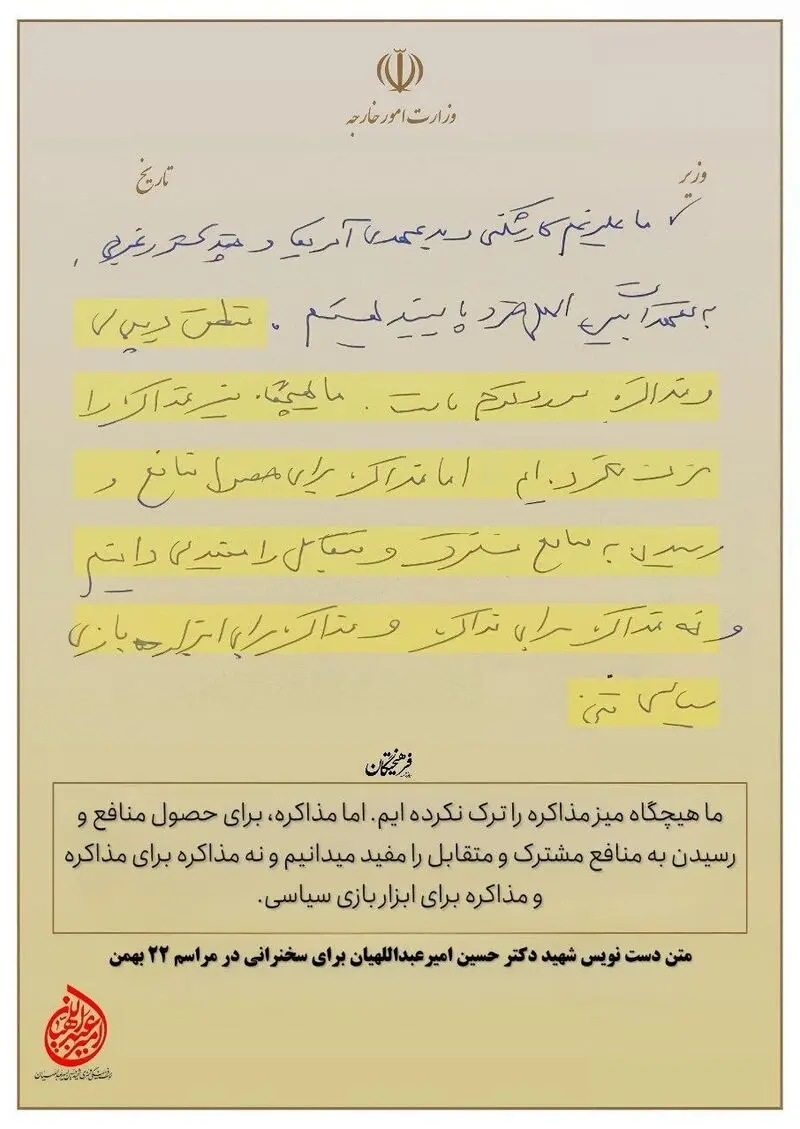 وزارت امور خارجه
وزیر
تاریخ
✓ ما علیرغم کارشکنی و بدعهدی آمریکا و چند کشور غربی،
به تعهدات بین المللی خود پایبند هستیم. منطق دیپلماسی
و مذاکره ما هیچگاه میز مذاکره را
ترک نکرده ایم اما مذاکره برای حصول منافع و
رسیدن به منافع مشترک و متقابل را مفید می دانیم
و نه مذاکره برای مذاکره و مذاکره برای ابزار بازی
سیاسی
فرهیختگان
ما هیچگاه میز مذاکره را ترک نکرده ایم. اما مذاکره، برای حصول منافع و
رسیدن به منافع مشترک و متقابل را مفید میدانیم و نه مذاکره برای مذاکره
و مذاکره برای ابزار بازی سیاسی.
متن دست نویس شهید دکتر حسین امیرعبداللهیان برای سخنرانی در مراسم ۲۲ بهمن
امیرعبداللهیان